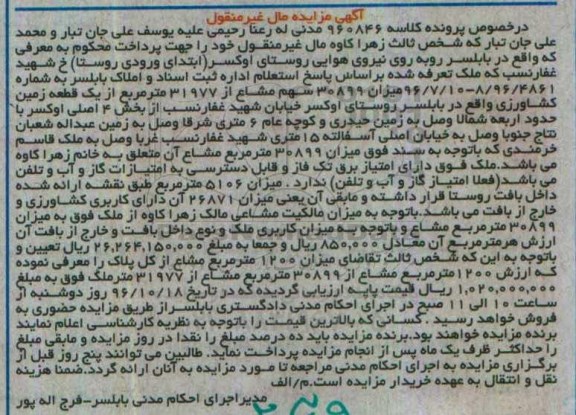 آگهی مزایده مال غیرمنقول
درخصوص پرونده کلاسه ۹۶۰۸۴۶ مدنی له رعنا رحیمی علیه یوسف علی جان تبار و محمد
علی جان تبار که شخص ثالث زهرا کاوه مال غیرمنقول خود را جهت پرداخت محکوم به معرفی
که واقع در بابلسر روبه روی نیروی هوایی روستای اوکسر(ابتدای ورودی روستا) خ شهید
غفارنسب که ملک تعرفه شده براساس پاسخ استعلام اداره ثبت اسناد و املاک بابلسر به شماره
۸/۹۶/۴۸۶۱-۹۶/۷/۱۰ میزان ۳۰۸۹۹ سهم مشاع از ۳۱۹۷۷ مترمربع از یک قطعه زمین
کشاورزی واقع در بابلسر روستای اوکسر خیابان شهید غفارنسب از بخش ۴ اصلی اوکسر با
حدود اربعه شمالا وصل به زمین حیدری و کوچه عام ۶ متری شرقا وصل به زمین عبداله شعبان
نتاج جنوبا وصل به خیابان اصلی آسفالته ۱۵متری شهید غفارنسب غربا وصل به ملک قاسم
خرمندی که باتوجه به سند فوق میزان ۳۰۸۹۹ مترمربع مشاع آن متعلق به خانم زهرا کاوه
می باشد.ملک فوق دارای امتیاز برق تک فاز و قابل دسترسی به امتیازات گاز و آب و تلفن
می باشد(فعلا امتیاز گاز و آب و تلفن) ندارد . میزان ۵۱۰۶ مترمربع طبق نقشه ارائه شده
داخل بافت روستا قرار داشته و مابقی آن یعنی میزان ۲۶۸۷۱ آن دارای کاربری کشاورزی و
خارج از بافت می باشد.باتوجه به میزان مالکیت مشاعی مالک زهرا کاوه از ملک فوق به میزان
۳۰۸۹۹ مترمربع مشاع و باتوجه به میزان کاربری ملک و نوع داخل بافت و خارج از بافت آن
ارزش هرمترمربع آن معادل ۸۵۰,۰۰۰ ریال و جمعا به مبلغ ۲۶,۲۶۴,۱۵۰,۰۰۰ ریال تعیین و
باتوجه به این که شخص ثالث تقاضای میزان ۱۲۰۰ مترمربع مشاع از کل پلاک را معرفی نموده
که ارزش ۱۲۰۰مترمربع مشاع از ۳۰۸۹۹ مترمربع مشاع از ۳۱۹۷۷ مترملگ فوق به مبلغ
۱,۰۲۰,۰۰۰,۰۰۰ ریال قیمت پایه ارزیابی گردیده که در تاریخ ۹۶/۱۰/۱۸ روز دوشنبه از
ساعت ۱۰ الی ۱۱ صبح در اجرای احکام مدنی دادگستری بابلسراز طریق مزایده حضوری به
فروش خواهد رسید . کسانی که بالاترین قیمت را باتوجه به نظریه کارشناسی اعلام نمایند
برنده مزایده خواهند بود.برنده مزایده باید ده درصد مبلغ را نقدا در روز مزایده و مابقی مبلغ
را حداکثر ظرف یک ماه پس از انجام مزایده پرداخت نماید. طالبین می توانند پنج روز قبل از
برگزاری مزایده به اجرای احکام مدنی مراجعه تا مورد مزایده به آنان ارائه گردد.ضمنا هزینه
نقل و انتقال به عهده خریدار مزایده است.م/الف
مدیراجرای احکام مدنی بابلسر-فرج اله پور